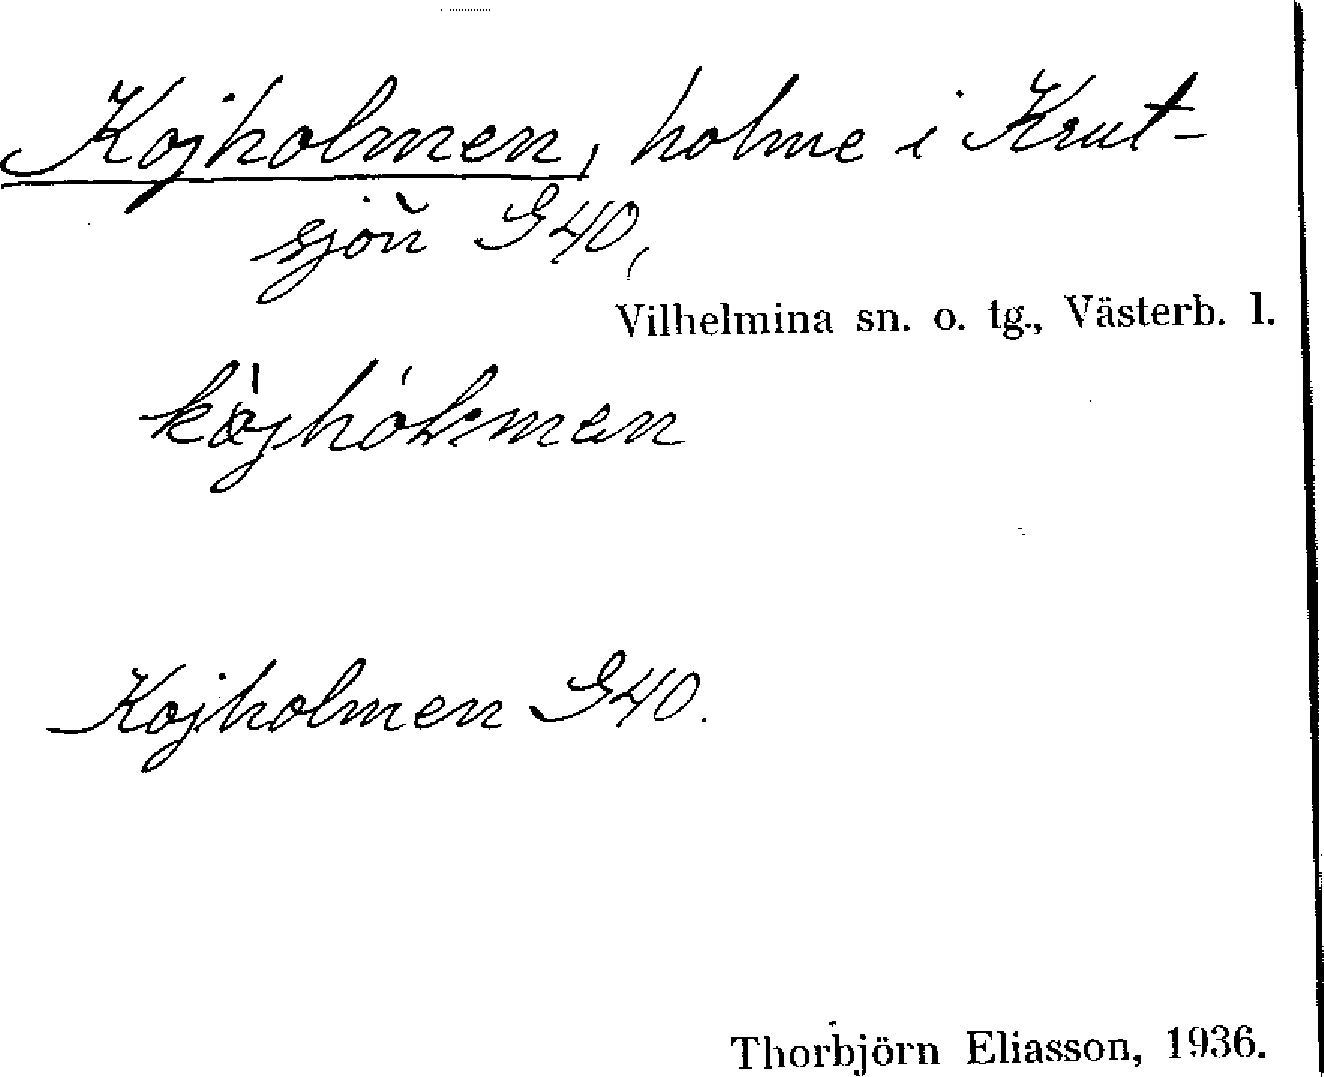 Kojholmen, holme i Krut-
sjön G40,
Vilhelmina sn. o. tg., Västerb. l.
Kojholmen G40.
Thorbjörn Eliasson, 1936.